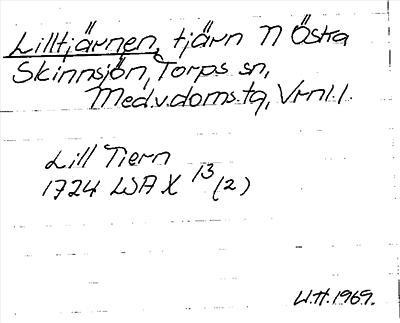 Lilltjärnen, tjärn N Östra
Skinnsjön, Torps sn,
Medv. doms. tg, Vrnl.
Lill Tiern
1724 LSA X 13 (2)
U.H. 1969.